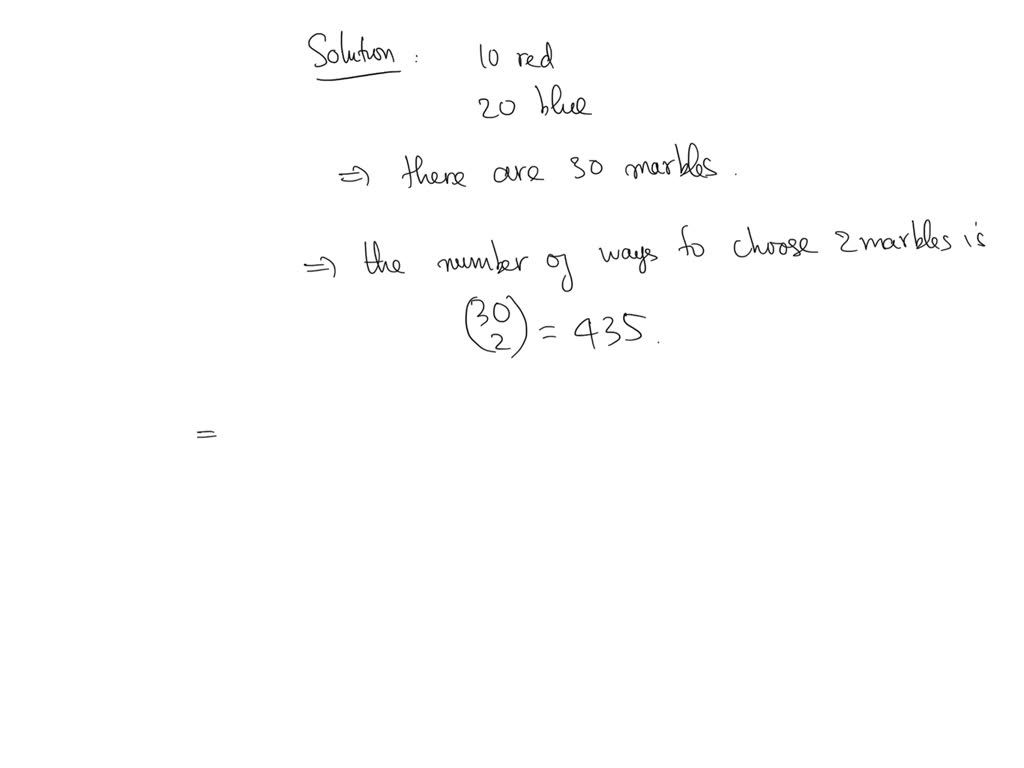 Solution : 10 red
20 blue
⇒ there are 30 marbles.
⇒ the number of ways to choose 2 marbles is
(30 2) = 435.
=